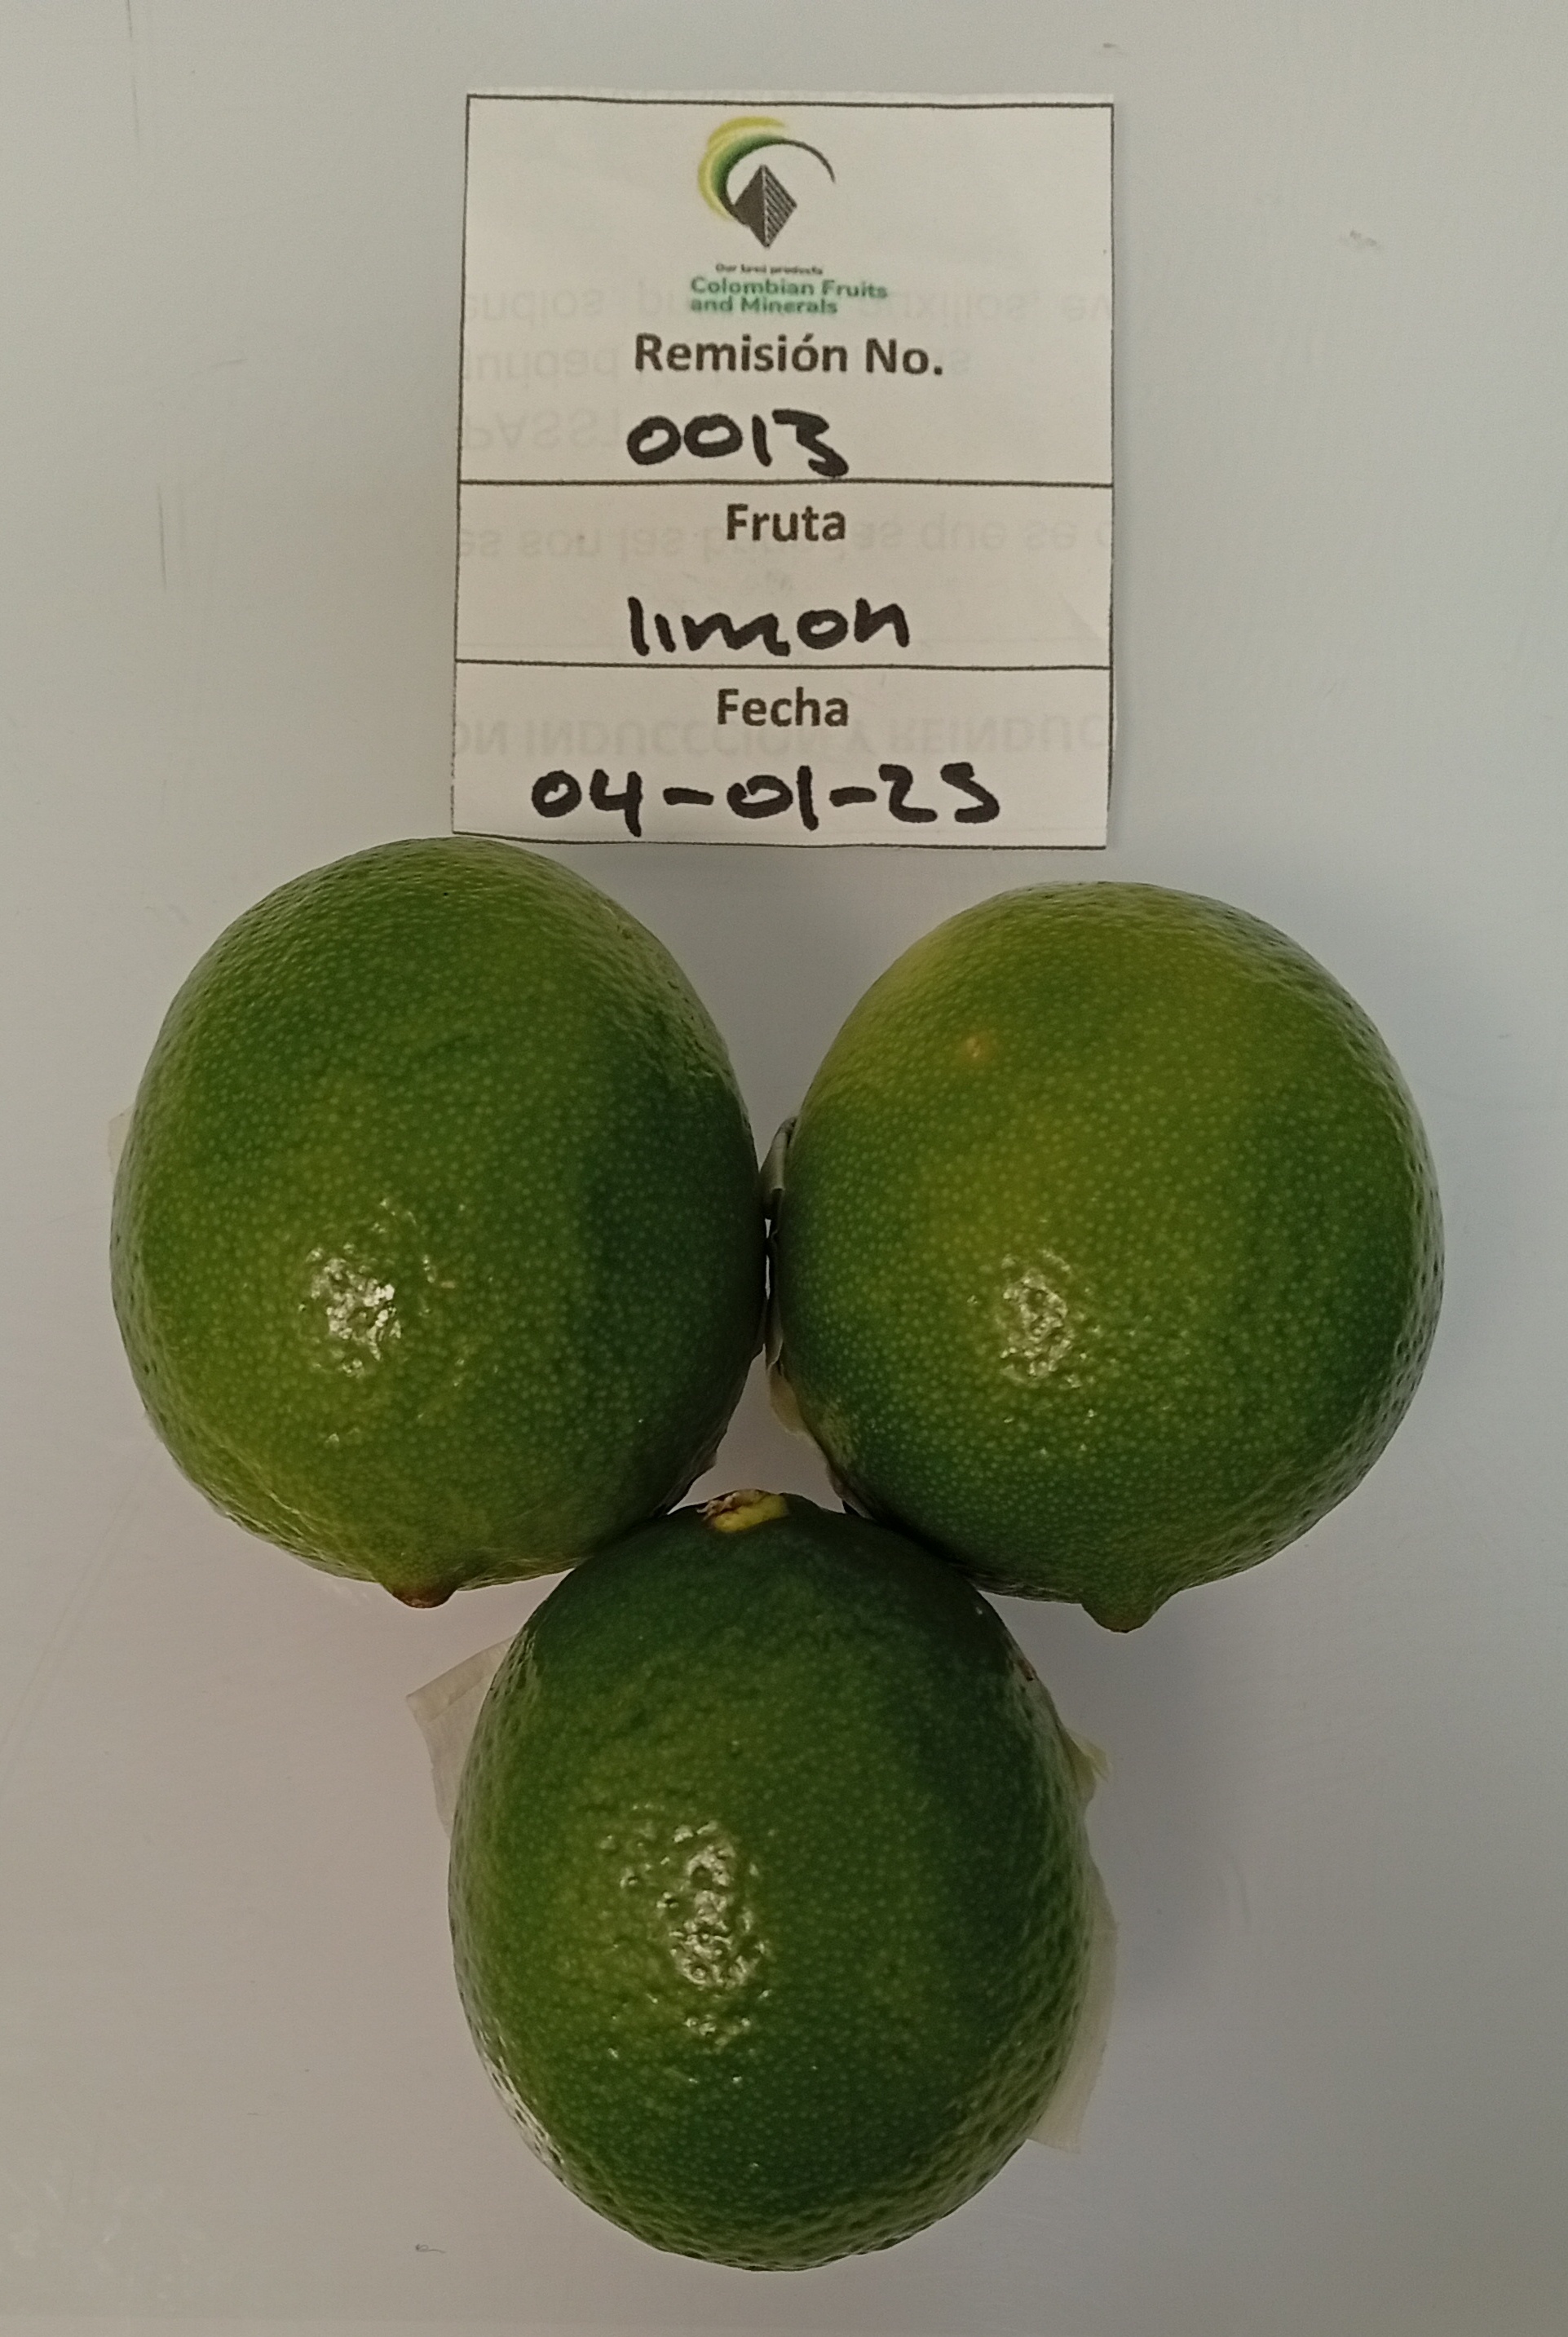 Our best products
Colombian Fruits
and Minerals
Remisión No.
0013
Fruta
limon
Fecha
04-01-25